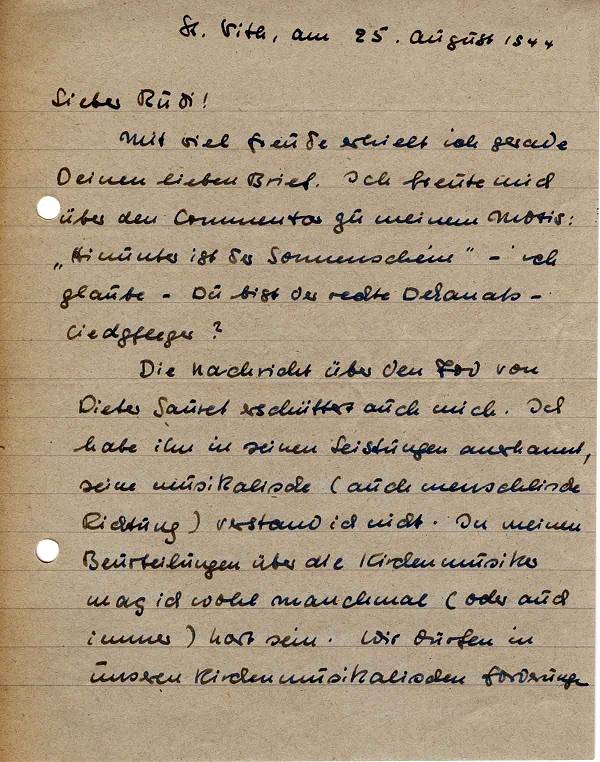 St. Vith, am 25. August 1944
Lieber Rudi!
Mit viel Freude erhielt ich gerade
Deinen lieben Brief. Ich freute mich
über den Commentar zu meinem Motiv:
„Hinunter ist der Sonnenschein" - ich
glaube - Du bist der rechte Dekanats-
liedpfleger?
Die Nachricht über den Tod von
Dieter Sauret erschüttert auch mich. Ich
habe ihn in seinen Leistungen anerkannt,
seine musikalische (auch menschliche
Richtung) verstand ich nicht. In meinen
Beurteilungen über die Kirchenmusiker
mag ich wohl manchmal (oder auch
immer) hart sein. Wir dürfen in
unseren Kirchenmusikalischen Forderungen